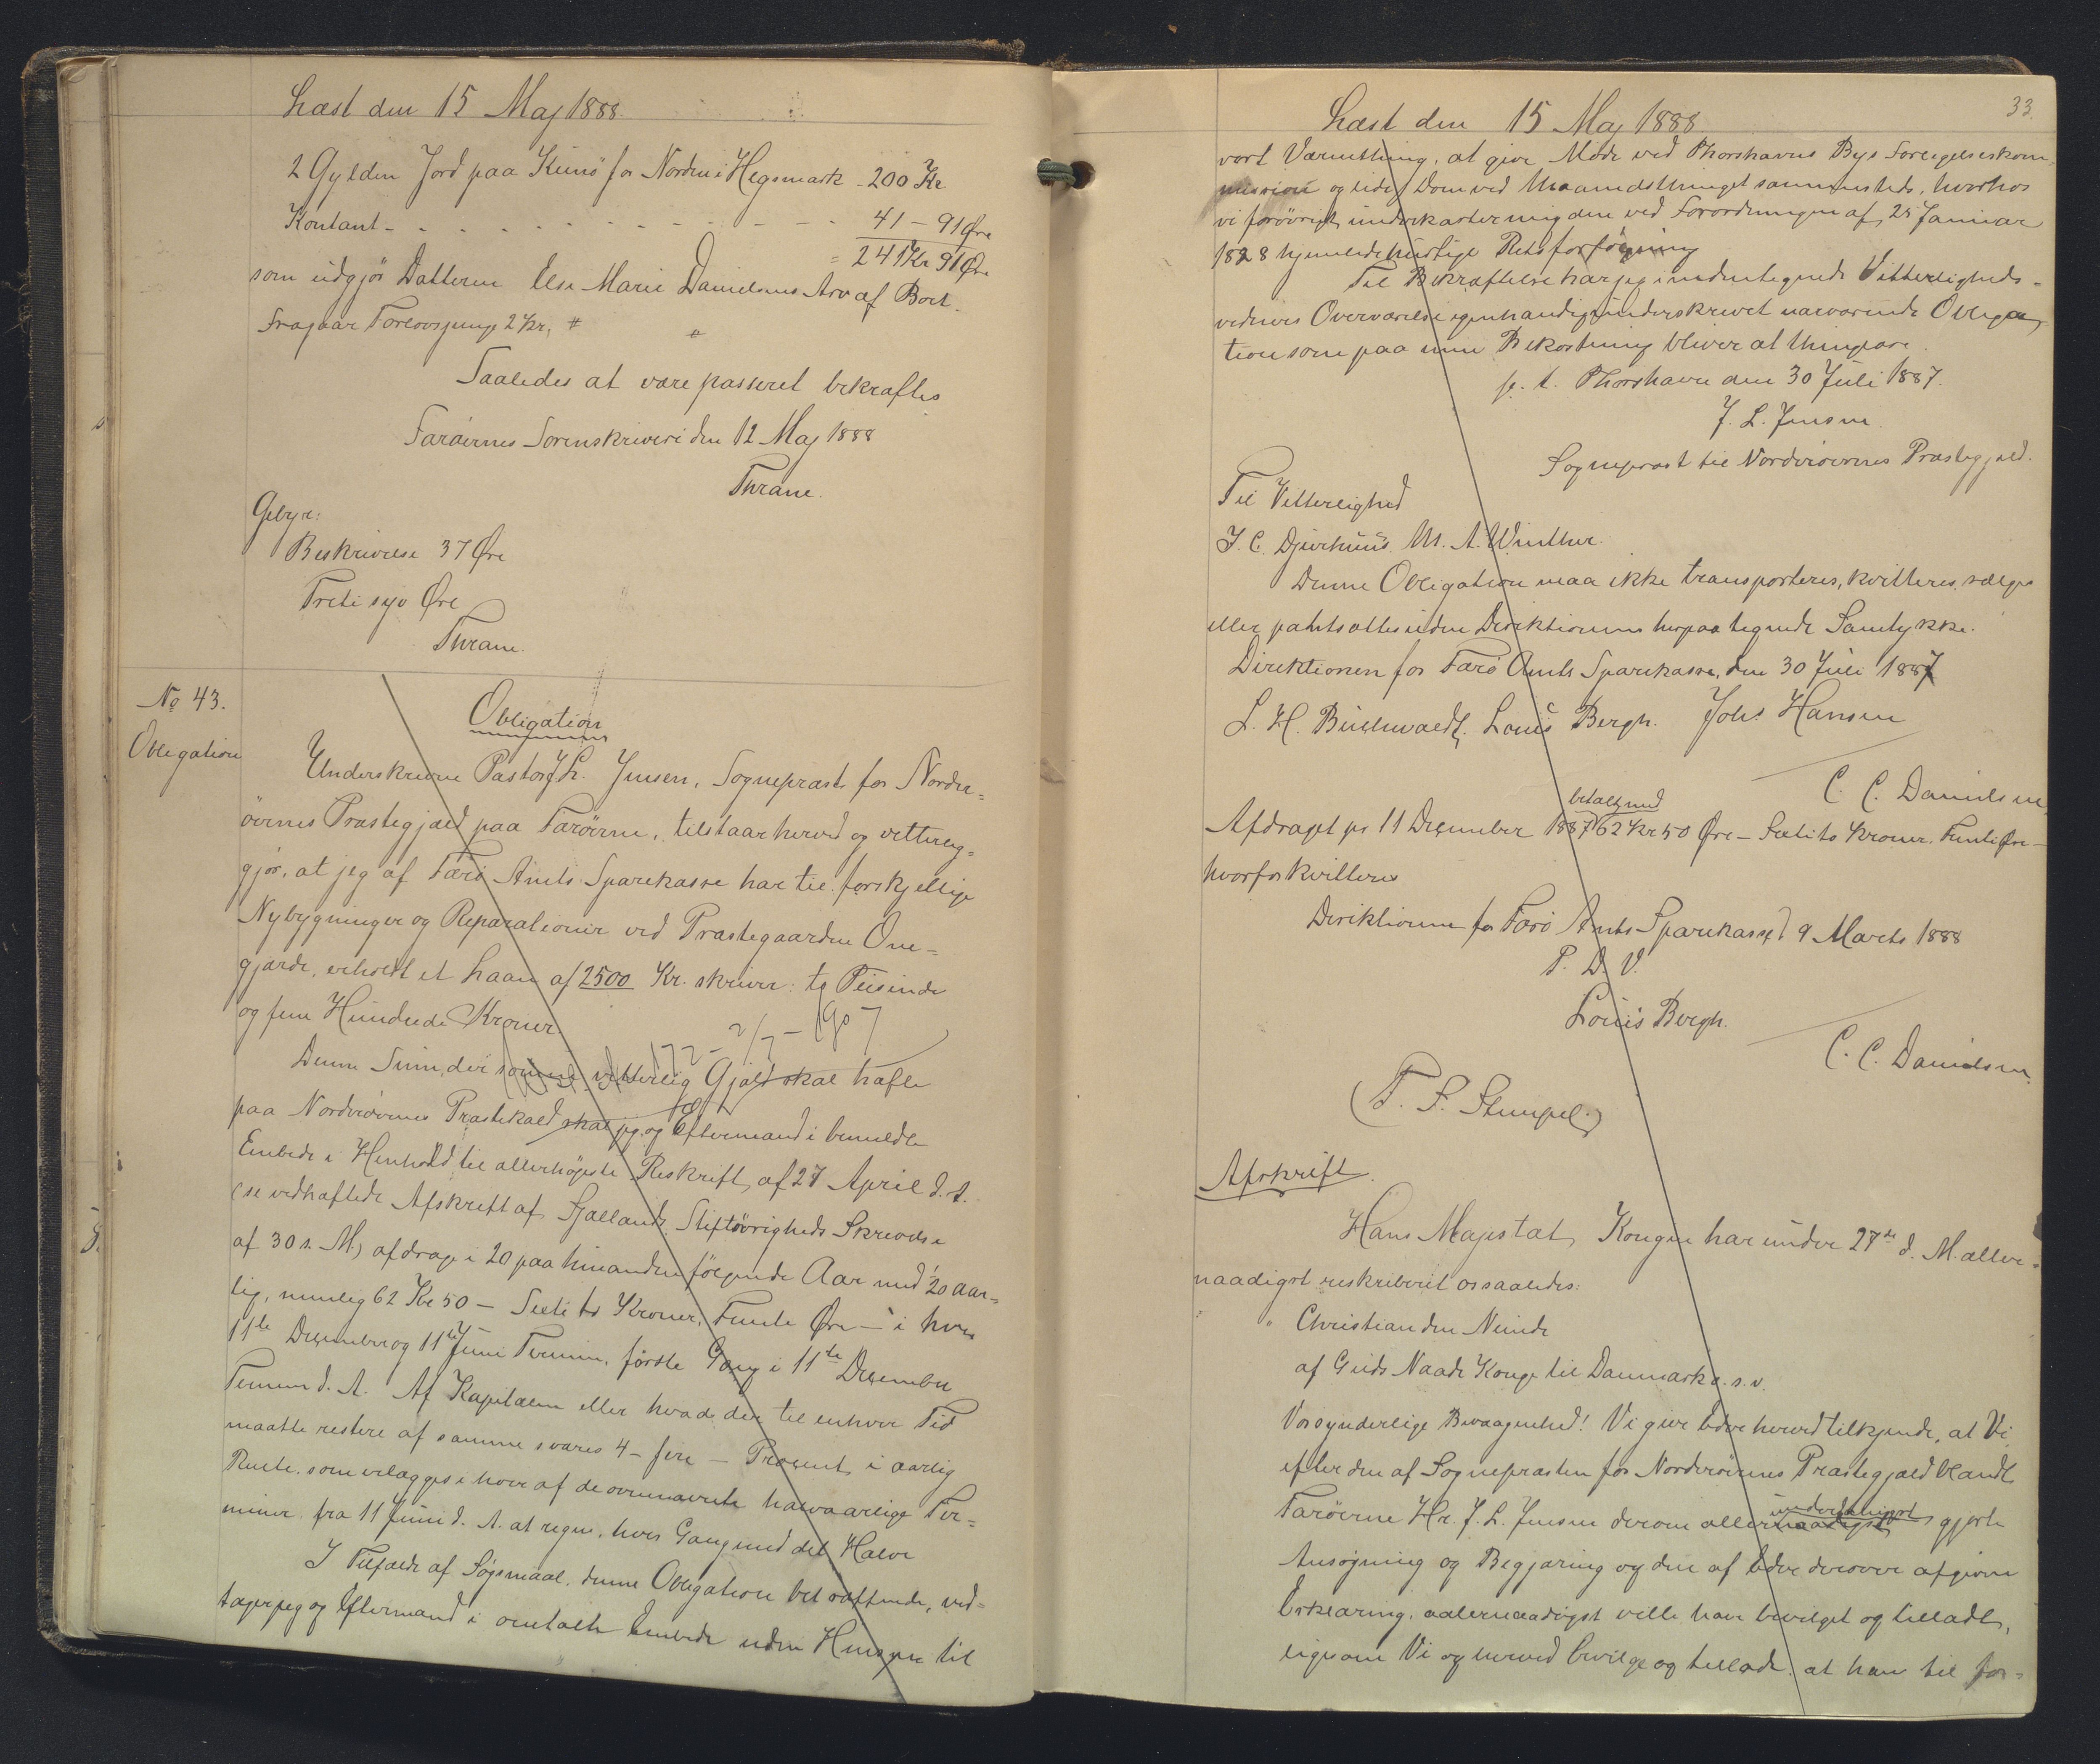 Læst den 15 Maj 1888.
2 Gylden Jord paa Kunø for Norden i Hegsmark - 200 Kr
Kontant - - - - - - - - - 41 - 91 Øre
= 241 Kr 91 Øre
som udgjør Datteren Else Marie Danielsens Arv af Boet.
Fragaar Forlovspenge 2 Kr,
Saaledes at være passeret bekræftes
Færøernes Sorenskriveri den 12 Maj 1888
Thrane.
Gebyr:
Beskrivelse 37 Øre
Treti syv Øre
Thrane.
No 43.
Obligation
Obligation
Underskrevne Pastor J. L. Jensen, Sognepræst for Norder=
øernes Præstegjæld paa Færøerne, tilstaar herved og vitterlig=
gjør, at jeg af Færø Amts Sparekasse har til forskjellige
Nybygninger og Reparationer ved Præstegaarden One=
gjærde, erholdt et Laan af 2500 Kr. skriver: to Tusinde
og fem Hundrede Kroner.
2/7 - 1907
Denne Sum, der som vitterlig Gjæld skal hæfte
paa Norderøernes Præstekald skal jeg og Eftermand i bemeldte
Embede i Henhold til allerhøjeste Reskript af 27 April d. A.
(se vedhæftede Afskrift af Sjællands Stiftøvrigheds Skrivelse
af 30 s. M.) afdrage i 20 paa hinanden følgende Aar med 1/20 aar=
lig, nemlig 62 Kr 50 - Sexti to Kroner, Femti Øre - i hver
11te December og 11te Juni Termin, første Gang i 11te December
Termin d. A. Af Kapitalen eller hvad der til enhver Tid
maatte restere af samme svares 4 - fire - Procent i aarlig
Rente, som erlægges i hver af de ovennævnte halvaarlige Ter=
miner fra 11 Juni d. A. at regne, hver Gang med det Halve
I Tilfælde af Søgsmaal, denne Obligation betræffende, ved=
tager jeg og Eftermand i omtalte Embede uden Hensyn til
33.
Læst den 15 Maj 1888
vort Værnething, at give Møde ved Thorshavns Bys Forligelseskom=
mission og lide Dom ved Maanedsthinget sammesteds, hvorhos
vi forøvrigt underkaster mig den ved Forordningen af 25 Januar
1828 hjemlede hurtige Retsforfølgning
Til Bekræftelse har jeg i undertegnede Vitterligheds=
vidners Overværelse egenhændig underskrevet nærværende Obliga
tion som paa min Bekostning bliver at thinglæse.
p. t. Thorshavn den 30 Juli 1887.
J. L. Jensen.
Sognepræst til Norderøernes Præstegjæld.
Til Vitterlighed
J. C. Djurhuus. M. A. Winther.
Denne Obligation maa ikke transporteres, kvitteres, sælges
eller pantsættes uden Direktionens herpaa tegnede Samtykke.
Direktionen for Færø Amts Sparekasse, den 30 Juli 1887
L. H. Buchwaldt. Louis Bergh. Johs Hansen
C. C. Danielsen
betalt med
Afdraget pr 11 December 1887 62 Kr 50 Øre - Sexti to Kroner Femti Øre -
hvorfor kvitteres
Direktionen for Færø Amts Sparekasse, 9 Marts 1888
P. D. V.
Louis Bergh.
C. C. Danielsen.
(F. S. Stempel.)
Afskrift.
Hans Majestæt Kongen har under 27de d. M. aller=
naadigst reskriberet os saaledes:
" Christian den Niende
af Guds Naade Konge til Danmark o. s. v.
Vor synderlige Bevaagenhed! Vi give Eder herved tilkjende, at Vi
efter den af Sognepræsten for Norderøernes Præstegjæld blandt
underdanigst
Færøerne Hr. J. L. Jensen derom allernaadigst gjorte
Ansøgning og Begjæring og den af Eder derover afgivne
Erklæring, allernaadigst ville have bevilget og tilladt,
ligesom Vi og herved bevilge og tillade, at han til for=